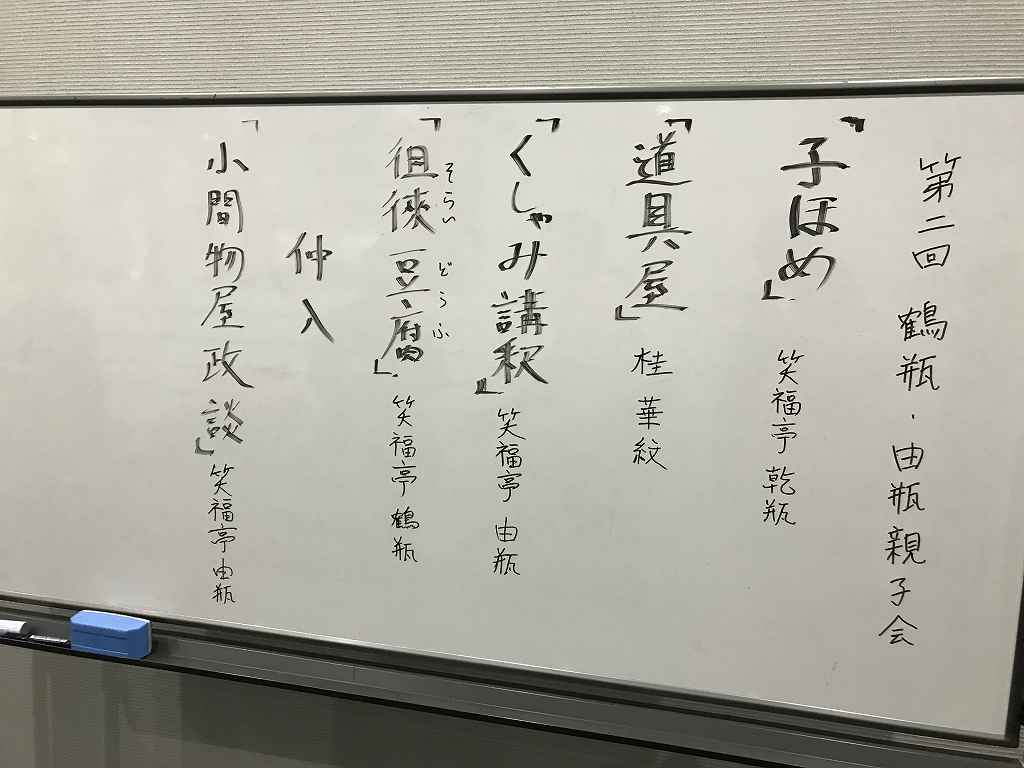 第二回 鶴瓶・由瓶親子会
「子ほめ」 笑福亭 乾瓶
「道具屋」 桂 華紋
「くしゃみ講釈」 笑福亭 由瓶
「徂徠豆腐」 笑福亭 鶴瓶
そらい どうふ
仲入
「小間物屋政談」 笑福亭由瓶